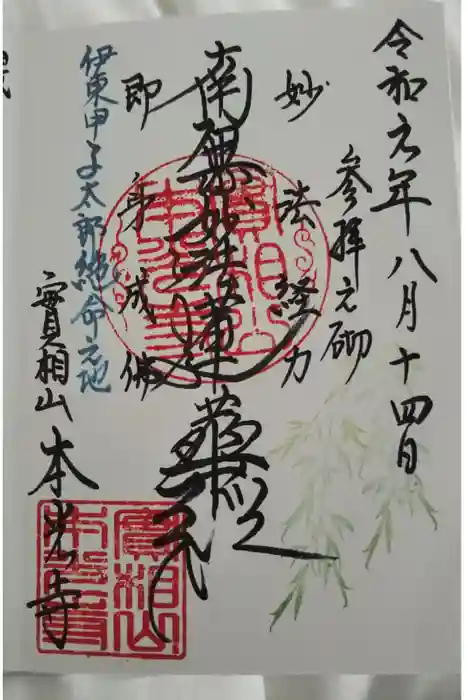 令和元年八月十四日
参拝之砌
妙法経力
南無妙法蓮華経
即身成佛
伊東甲子太郎絶命之地
實相山
本光寺
實相山
本光寺